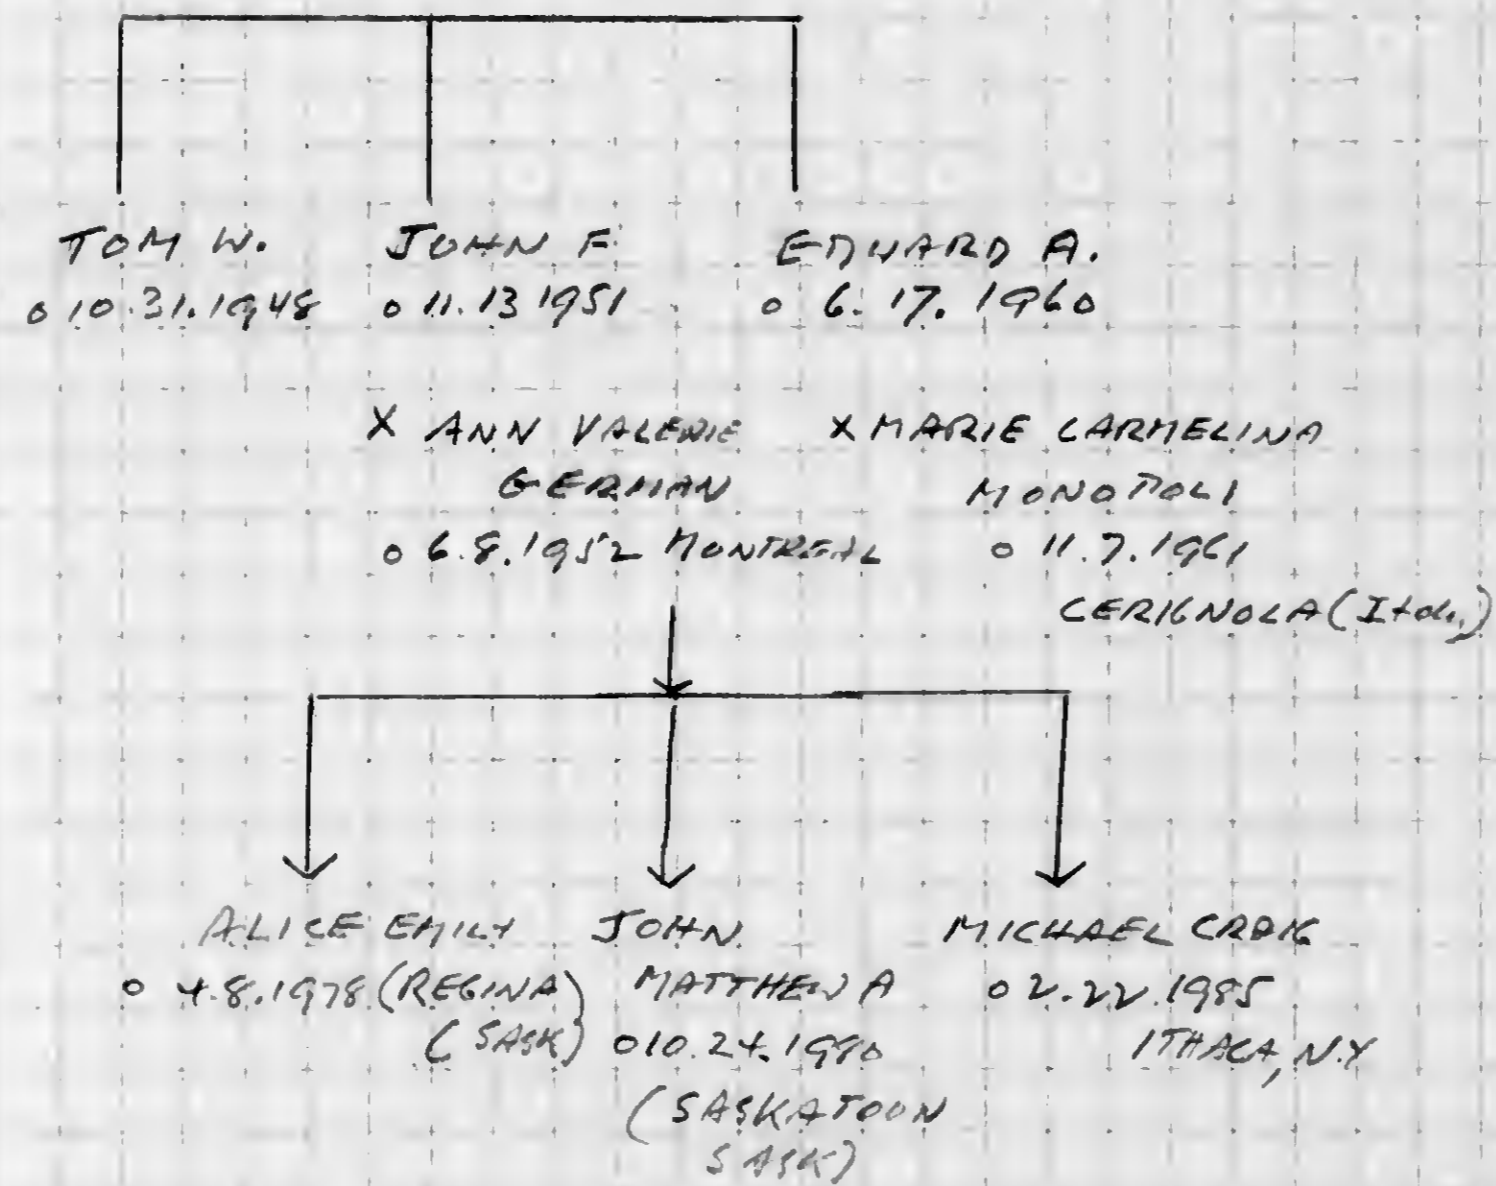 TOM W.
o 10.31.1948
JOHN F.
o 11.13 1951
EDWARD A.
o 6.17.1960
X ANN VALERIE
GERMAN
o 6.8.1952 MONTREAL
X MARIE CARMELINA
MONOPOLI
o 11.7.1961
CERIGNOLA (Italy)
ALICE EMILY
o 4.8.1978 (REGINA)
(SASK)
JOHN
MATTHEW A
o 10.24.1980
(SASKATOON
SASK)
MICHAEL CRAIG
o 2.22.1985
ITHACA, N.Y